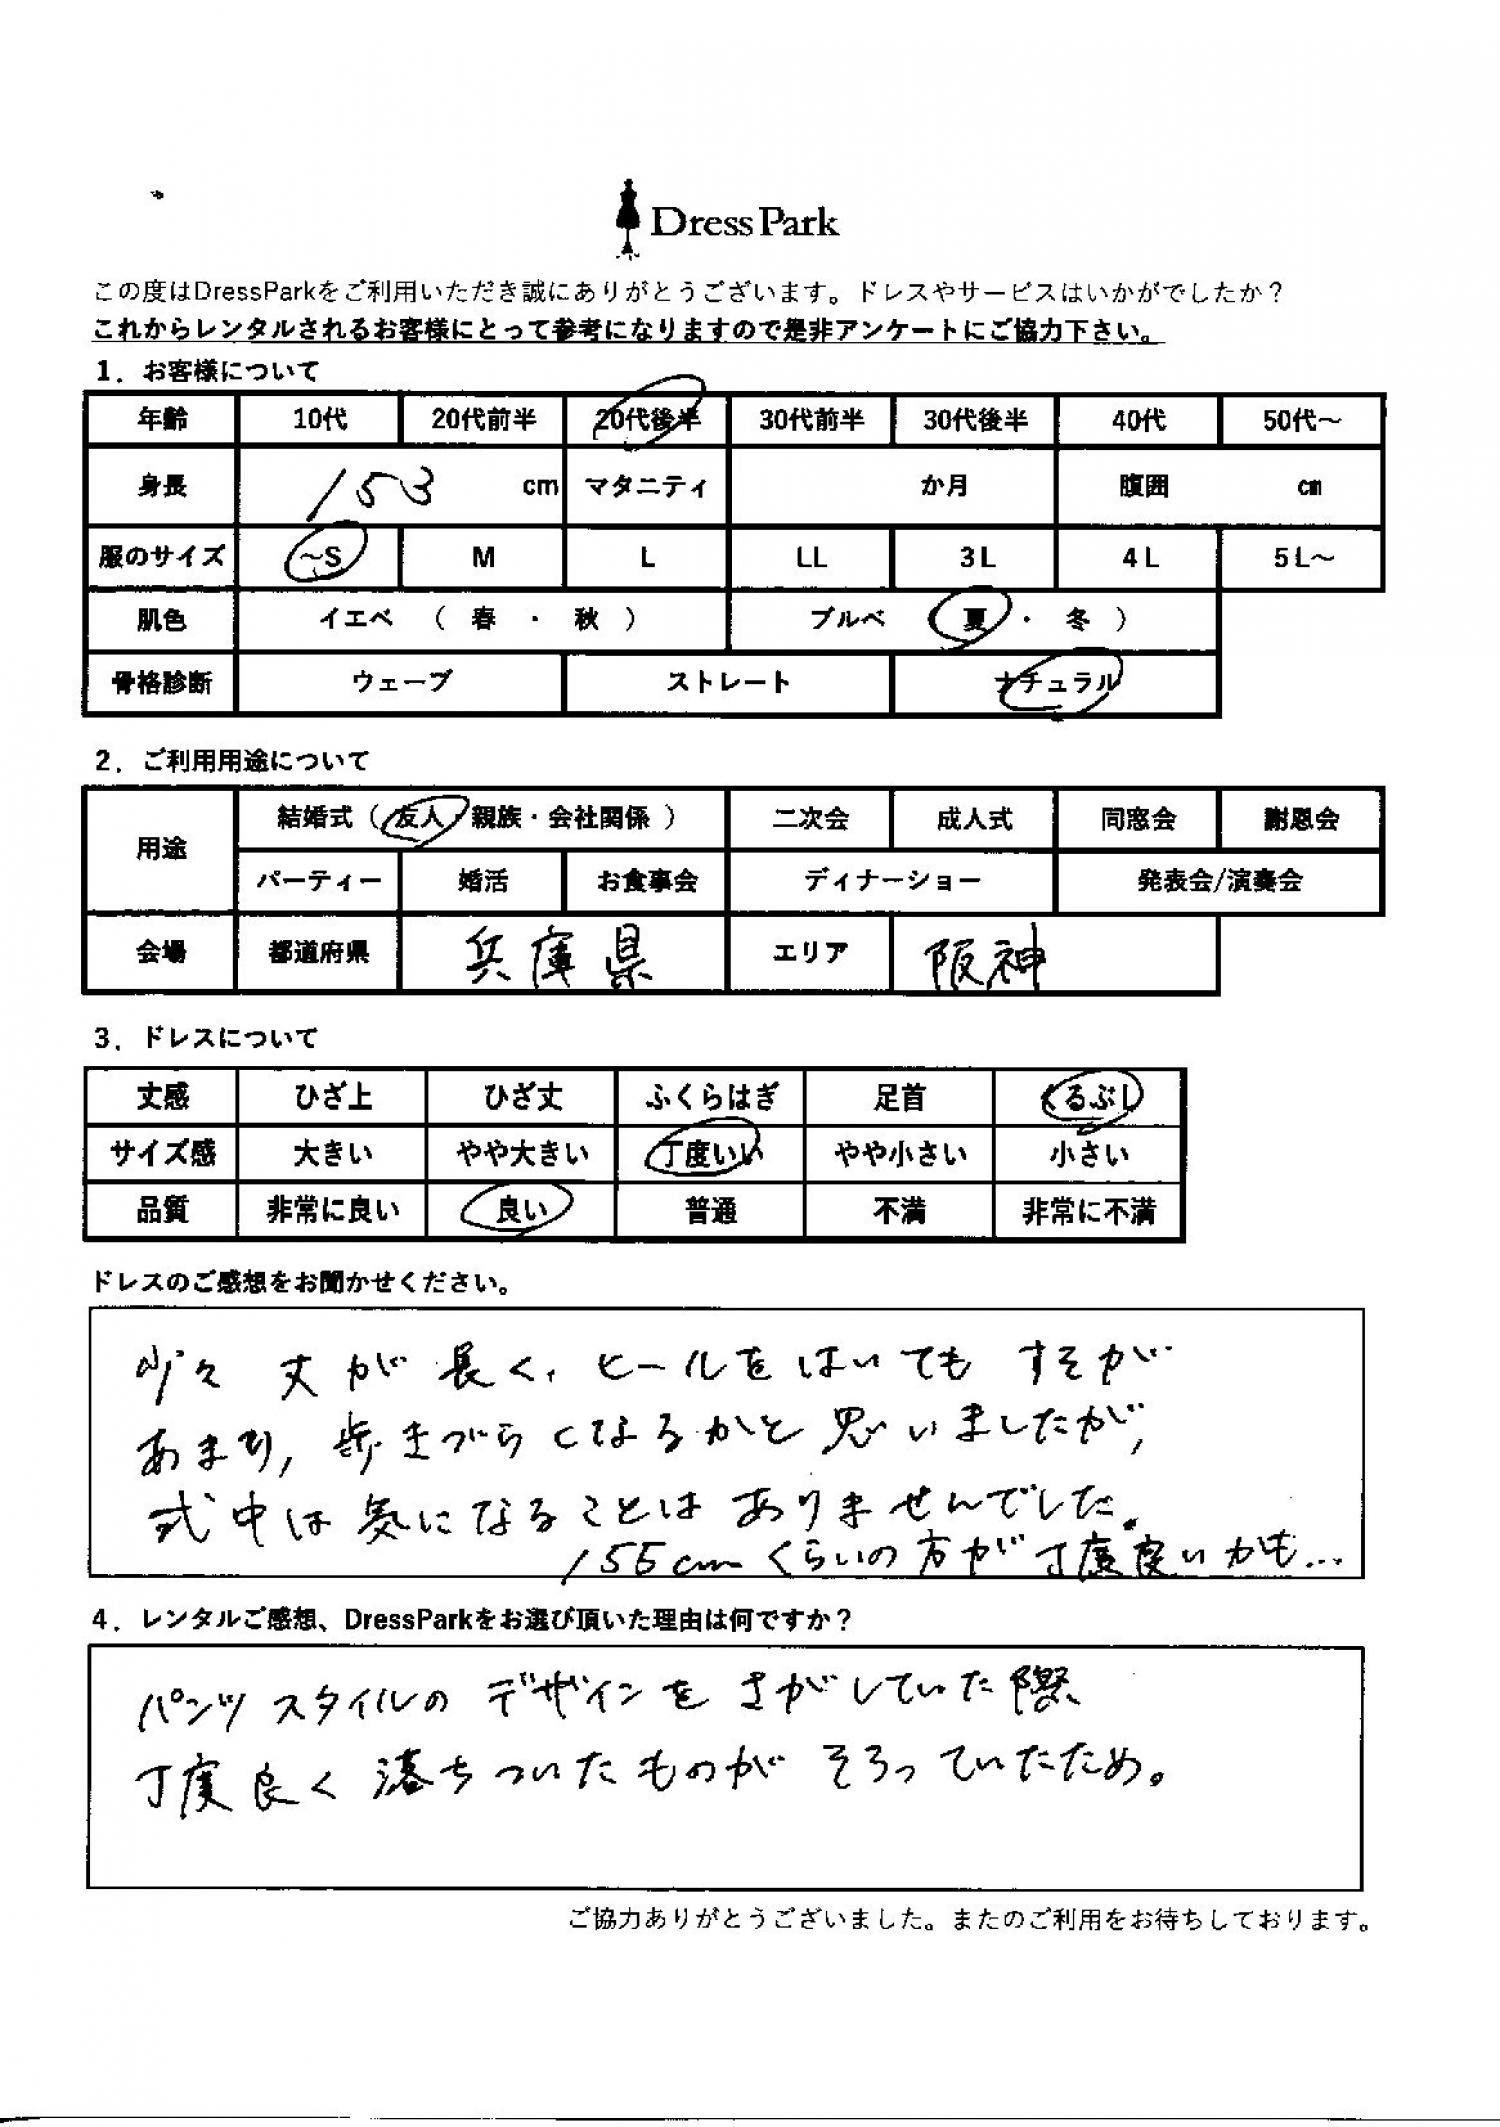 Dress Park
この度はDressParkをご利用いただき誠にありがとうございます。ドレスやサービスはいかがでしたか？
これからレンタルされるお客様にとって参考になりますので是非アンケートにご協力下さい。
1．お客様について
年齢 10代 20代前半 20代後半 30代前半 30代後半 40代 50代～
身長 153 cm マタニティ か月 腹囲 cm
服のサイズ ～S M L LL 3L 4L 5L～
肌色 イエベ （ 春 ・ 秋 ） ブルベ （ 夏 ・ 冬 ）
骨格診断 ウェーブ ストレート ナチュラル
2．ご利用用途について
用途 結婚式（ 友人・親族・会社関係 ） 二次会 成人式 同窓会 謝恩会
パーティー 婚活 お食事会 ディナーショー 発表会/演奏会
会場 都道府県 兵庫県 エリア 阪神
3．ドレスについて
丈感 ひざ上 ひざ丈 ふくらはぎ 足首 くるぶし
サイズ感 大きい やや大きい 丁度いい やや小さい 小さい
品質 非常に良い 良い 普通 不満 非常に不満
ドレスのご感想をお聞かせください。
少々丈が長く、ヒールをはいてもすそが
あまり、歩きづらくなるかと思いましたが、
式中は気になることはありませんでした。
155cmくらいの方が丁度良いかも...
4．レンタルご感想、DressParkをお選び頂いた理由は何ですか？
パンツスタイルのデザインをさがしていた際、
丁度良く落ちついたものがそろっていたため。
ご協力ありがとうございました。またのご利用をお待ちしております。